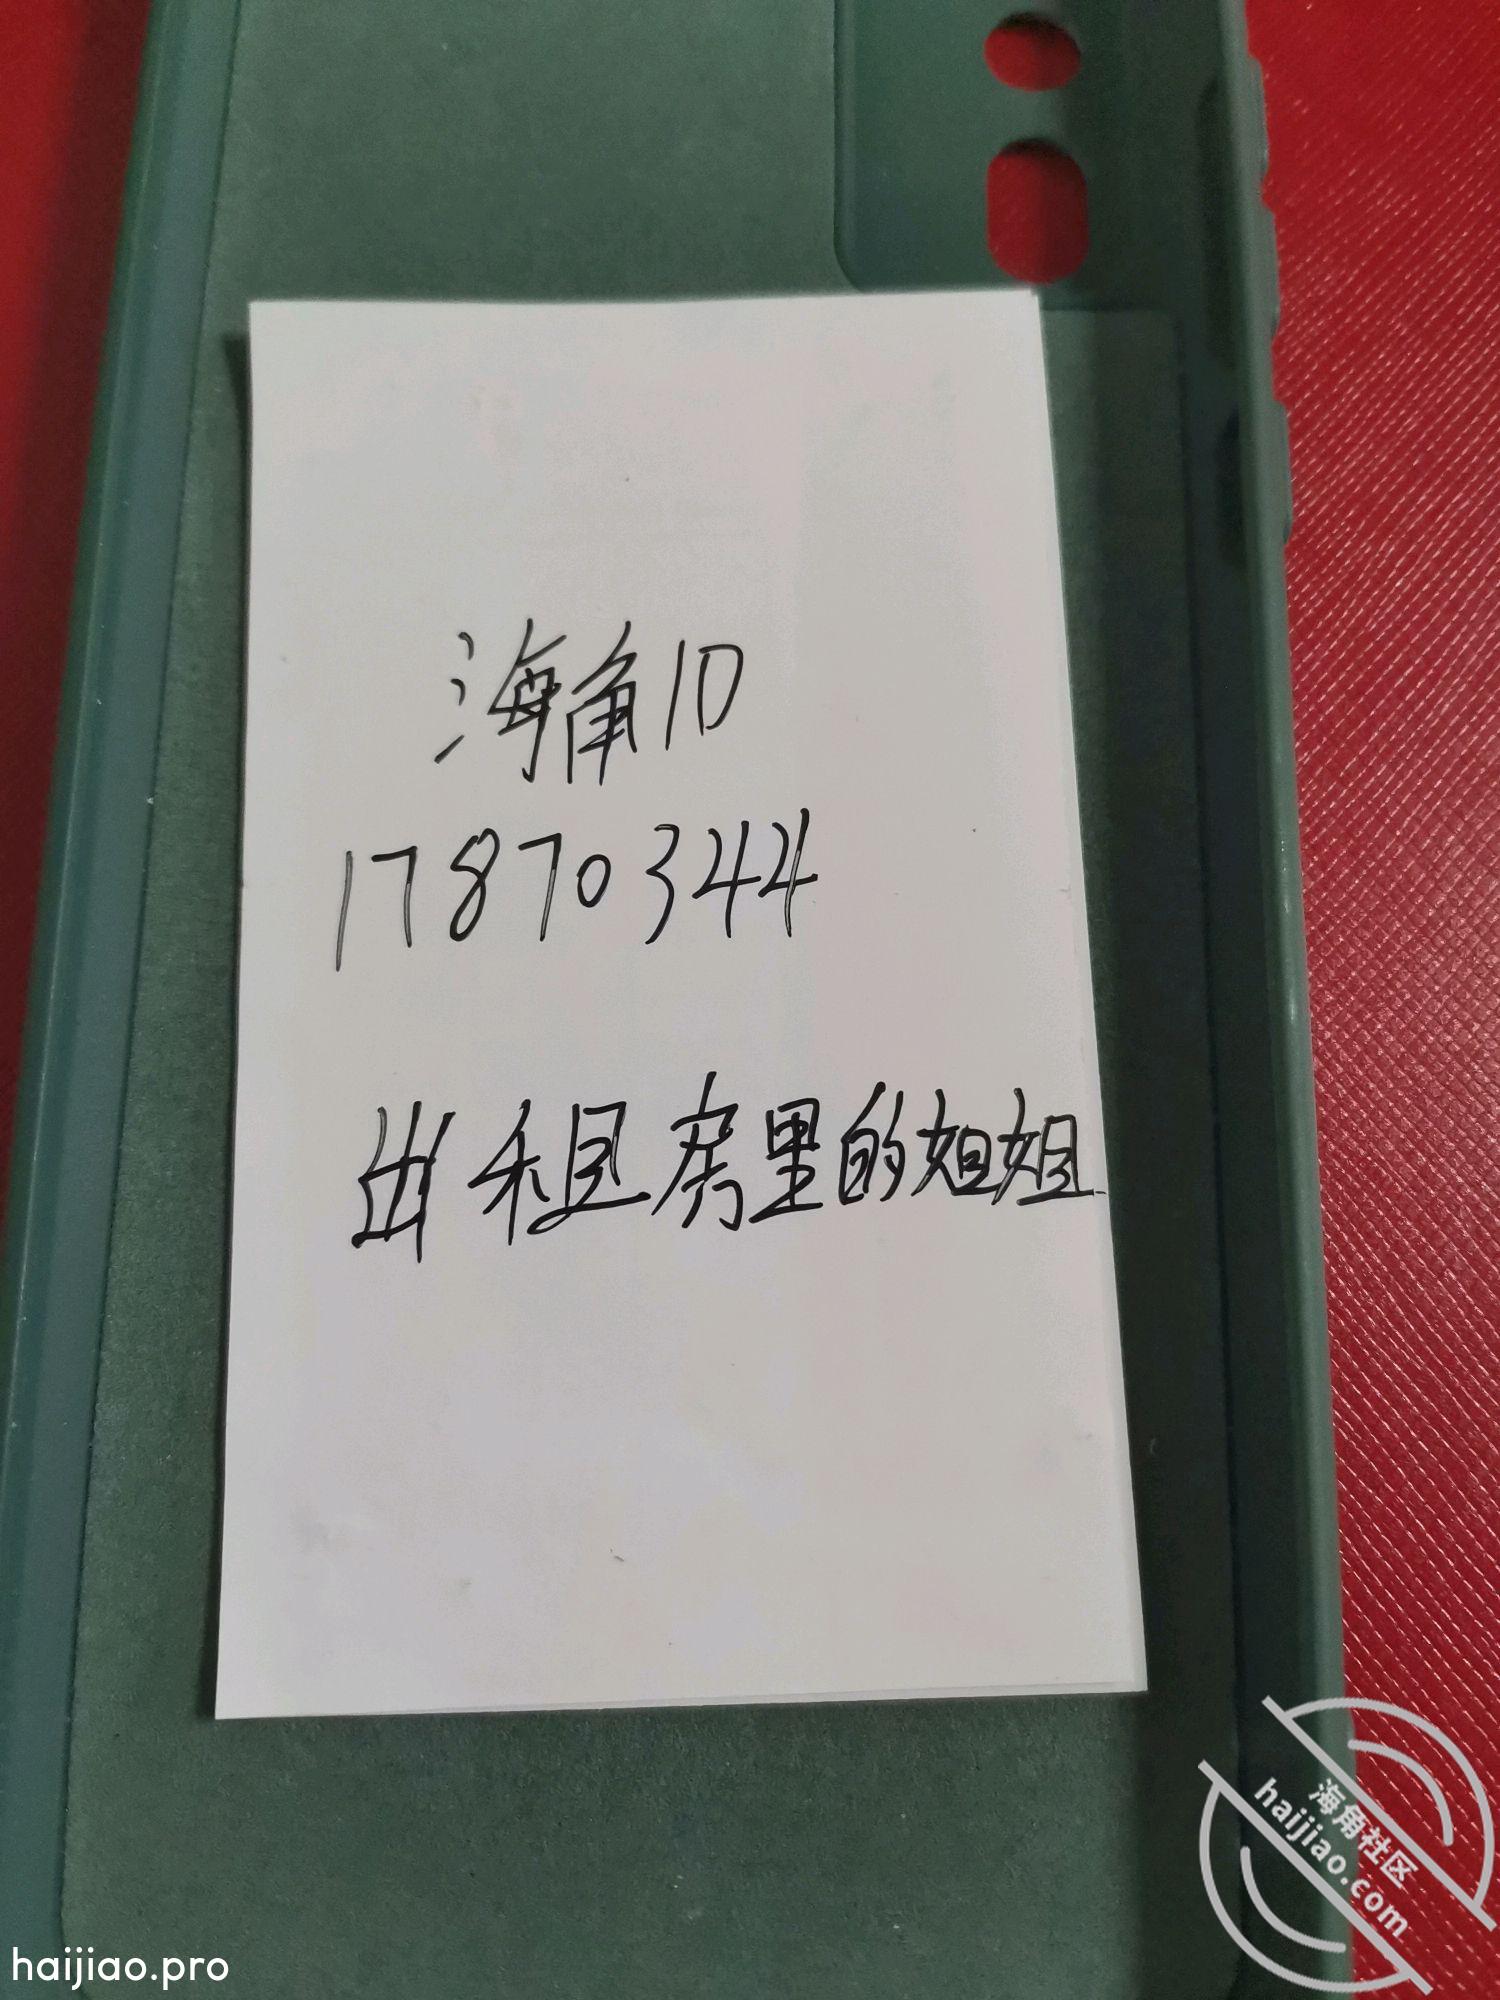 海角ID
17870344
出租房里的姐姐
海角社区
haijiao.com
haijiao.pro